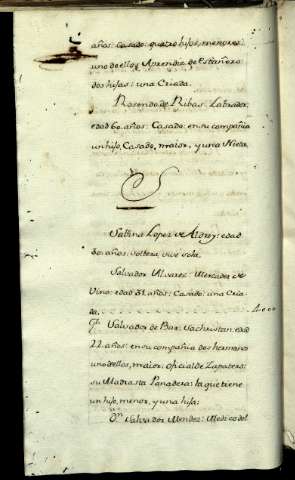 años: Casado: quatro hijos, menores:
uno de ellos Aprendiz de Estañero:
dos hijas: una Criada.
Rosendo de Ribas: Labrador:
edad 60 años: Casado: en su compañia
un hijo, Casado, maior, y una Nieta.
S
Sabina Lopez de edad
años: soltera: vive sola.
Salvador Alvarez: Mercader de
Vino: edad 51 años: Casado: una Cria-
da.
Salvador de Bar: Sachristan: edad
22 años: en su compañia dos hermanos
uno de ellos, maior: oficial de Zapatero:
su Madrasta Panadera: la que tiene
un hijo, menor, y una hija:
Dn. Salvador Mendez: Medico del